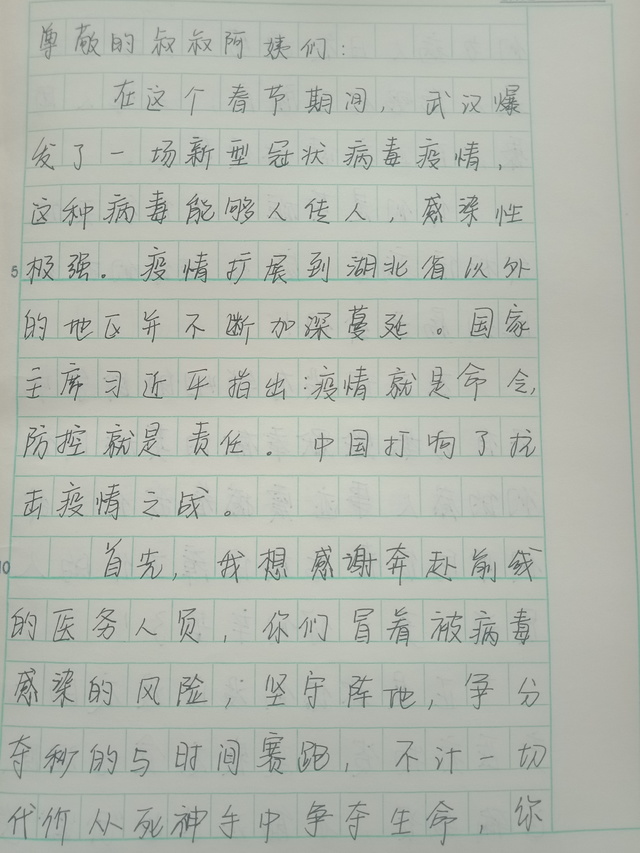 尊敬的叔叔阿姨们:
在这个春节期间,武汉爆
发了一场新型冠状病毒疫情,
这种病毒能够人传人,感染性
5极强.疫情扩展到湖北省以外
的地区并不断加深蔓延。国家
主席习近平指出:疫情就是命令,
防控就是责任。中国打响了抗
击疫情之战。
10首先,我想感谢奔赴前线
的医务人员,你们冒着被病毒
感染的风险,坚守阵地,争分
夺秒的与时间赛跑,不计一切
代价从死神手中争夺生命,你